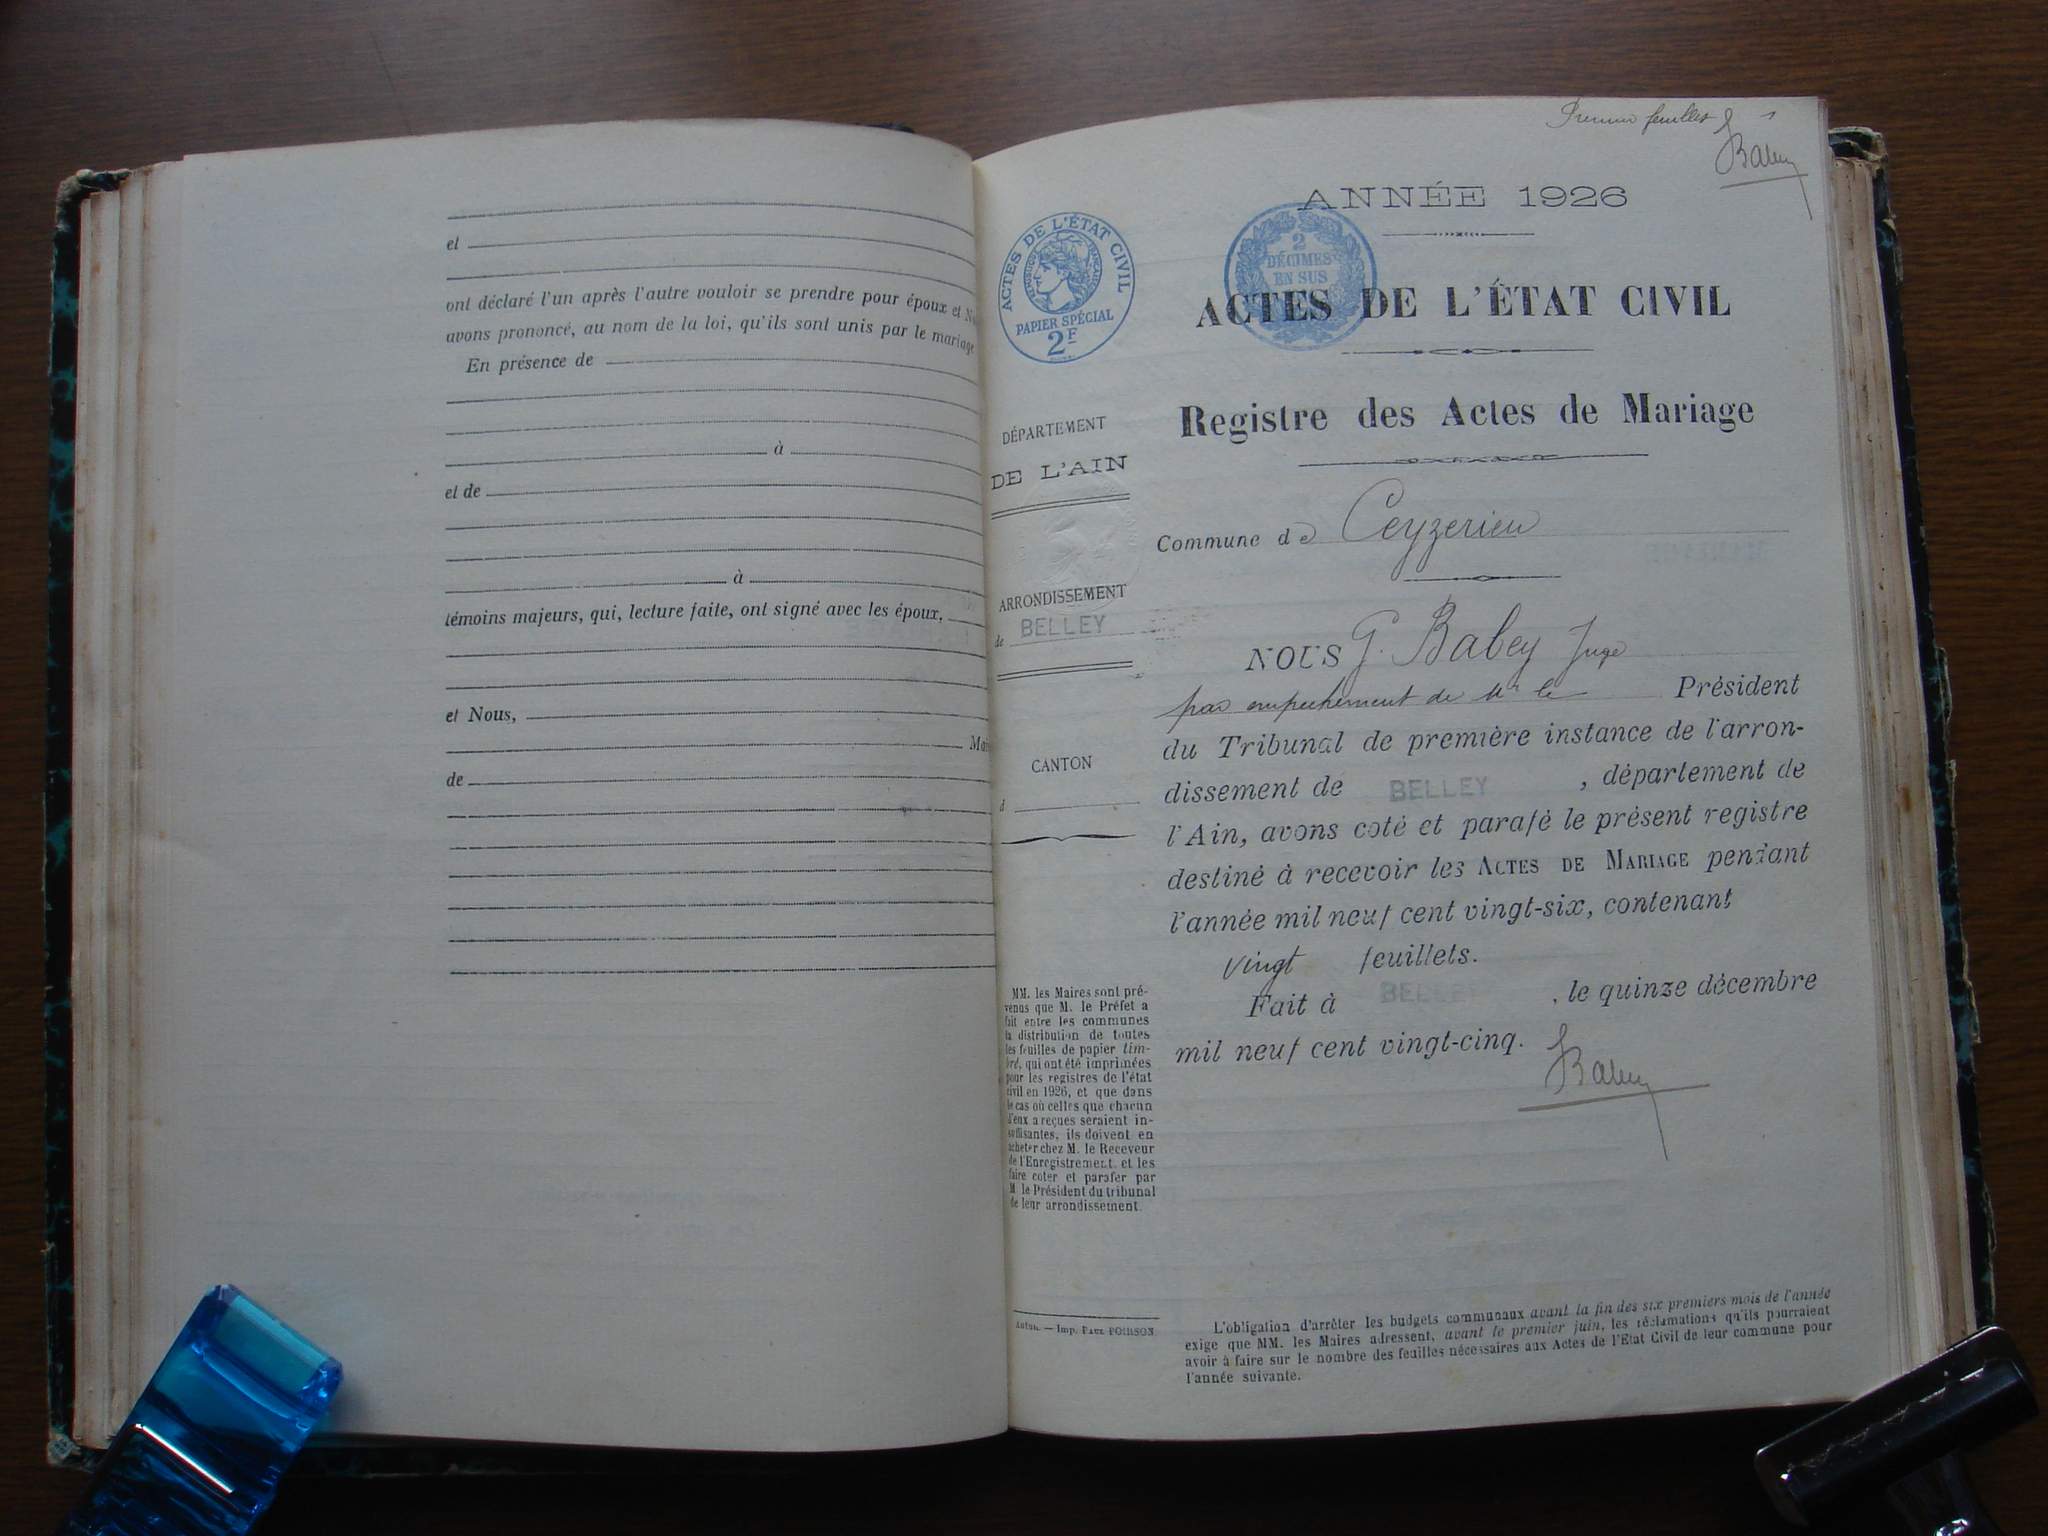 et
ont déclaré l'un après l'autre vouloir se prendre pour époux et
avons prononcé, au nom de la loi, qu'ils sont unis par le mariage
En présence de
à
et de
à
témoins majeurs, qui, lecture faite, ont signé avec les époux,
et Nous,
Mai
de
Premier feuillet 1
Babey
ANNÉE 1926
ACTES DE L'ÉTAT CIVIL
RÉPUBLIQUE FRANÇAISE
PAPIER SPÉCIAL
2F
2
DÉCIMES
EN SUS
ACTES DE L'ÉTAT CIVIL
Registre des Actes de Mariage
DÉPARTEMENT
DE L'AIN
ARRONDISSEMENT
de BELLEY
CANTON
d
Commune de Ceyzerieu
NOUS G. Babey Juge
par empechement de Mr le Président
du Tribunal de première instance de l'arron-
dissement de BELLEY, département de
l'Ain, avons coté et parafé le présent registre
destiné à recevoir les ACTES DE MARIAGE pendant
l'année mil neuf cent vingt-six, contenant
vingt feuillets.
Fait à BELLEY, le quinze décembre
mil neuf cent vingt-cinq.
Babey
MM. les Maires sont pré-
venus que M. le Préfet a
fait entre les communes
la distribution de toutes
les feuilles de papier tim-
bré, qui ont été imprimées
pour les registres de l'état
civil en 1926, et que dans
le cas où celles que chacun
d'eux a reçues seraient in-
suffisantes, ils doivent en
acheter chez M. le Receveur
de l'Enregistrement et les
faire coter et parafer par
M. le Président du tribunal
de leur arrondissement.
Autun. — Imp. PAUL POIRSON.
L'obligation d'arrêter les budgets communaux avant la fin des six premiers mois de l'année
exige que MM. les Maires adressent, avant le premier juin, les réclamations qu'ils pourraient
avoir à faire sur le nombre des feuilles nécessaires aux Actes de l'Etat Civil de leur commune pour
l'année suivante.